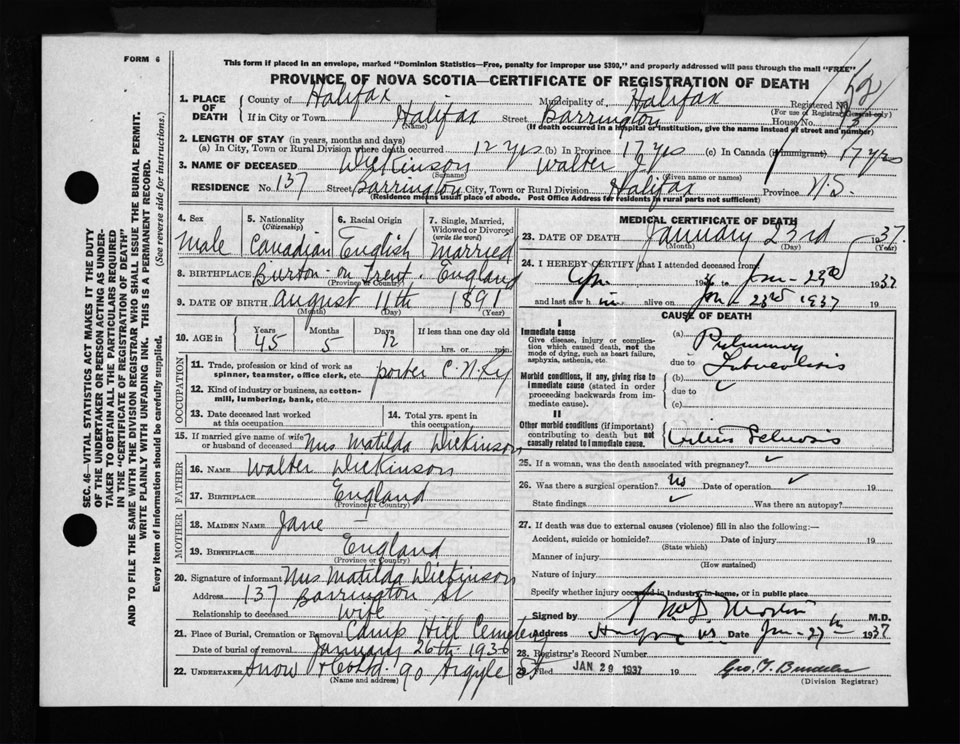 FORM 6
This form if placed in an envelope, marked "Dominion Statistics—Free, penalty for improper use $300," and properly addressed will pass through the mail "FREE"
PROVINCE OF NOVA SCOTIA—CERTIFICATE OF REGISTRATION OF DEATH
1. PLACE OF DEATH
County of Halifax Municipality of Halifax Registered No.
(For use of Registrar General only)
If in City or Town Halifax Street Barrington House No. 137
(Name) (If death occurred in a hospital or institution, give the name instead of street and number)
2. LENGTH OF STAY (in years, months and days)
(a) In City, Town or Rural Division where death occurred 12 yrs (b) In Province 17 yrs (c) In Canada (if immigrant) 17 yrs
3. NAME OF DECEASED Dickinson Walter
(Surname) (Given name or names)
RESIDENCE No. 137 Street Barrington City, Town or Rural Division Halifax Province N.S.
(Residence means usual place of abode. Post Office Address for residents in rural parts not sufficient)
4. Sex Male
5. Nationality (Citizenship) Canadian
6. Racial Origin English
7. Single, Married, Widowed or Divorced (write the word) Married
8. BIRTHPLACE Burton-on Trent. England
(Province or Country)
9. DATE OF BIRTH August 11th 1891
(Month) (Day) (Year)
10. AGE in Years 45 Months 5 Days 12 If less than one day old
hrs. or min.
OCCUPATION
11. Trade, profession or kind of work as spinner, teamster, office clerk, etc. porter C.N.Ry
12. Kind of industry or business, as cotton-mill, lumbering, bank, etc.
13. Date deceased last worked at this occupation
14. Total yrs. spent in this occupation
15. If married give name of wife or husband of deceased Mrs Matilda Dickinson
FATHER
16. NAME Walter Dickinson
17. BIRTHPLACE England
(Province or Country)
MOTHER
18. MAIDEN NAME Jane
19. BIRTHPLACE England
(Province or Country)
20. Signature of informant Mrs Matilda Dickinson
Address 137 Barrington St
Relationship to deceased Wife
21. Place of Burial, Cremation or Removal Camp Hill Cemetery
Date of burial or removal January 26th 1936
22. UNDERTAKER Snow & Co Ltd. 90 Argyle St
(Name and address)
MEDICAL CERTIFICATE OF DEATH
23. DATE OF DEATH January 23rd 1937.
(Month) (Day)
24. I HEREBY CERTIFY that I attended deceased from
193 to Jan-23rd 1937
and last saw him alive on Jan 23rd 1937
CAUSE OF DEATH
I
Immediate cause
Give disease, injury or complication which caused death, not the mode of dying, such as heart failure, asphyxia, asthenia, etc.
(a) Pulmonary
due to Tuberculosis
Morbid conditions, if any, giving rise to immediate cause (stated in order proceeding backwards from immediate cause).
(b)
due to
(c)
II
Other morbid conditions (if important) contributing to death but not causally related to immediate cause.
25. If a woman, was the death associated with pregnancy?
26. Was there a surgical operation? No Date of operation 19
State findings Was there an autopsy?
27. If death was due to external causes (violence) fill in also the following:—
Accident, suicide or homicide? Date of injury 19
(State which)
Manner of injury
(How sustained)
Nature of injury
Specify whether injury occurred in Industry, in home, or in public place
Signed by M.D.
Address Date Jan-27th 1937
28. Registrar's Record Number
29. Filed JAN 29 1937
(Division Registrar)
SEC. 46—VITAL STATISTICS ACT MAKES IT THE DUTY
OF THE UNDERTAKER OR PERSON ACTING AS UNDER-
TAKER TO OBTAIN ALL THE PARTICULARS REQUIRED
IN THE "CERTIFICATE OF REGISTRATION OF DEATH"
AND TO FILE THE SAME WITH THE DIVISION REGISTRAR WHO SHALL ISSUE THE BURIAL PERMIT.
WRITE PLAINLY WITH UNFADING INK. THIS IS A PERMANENT RECORD.
Every item of information should be carefully supplied. (See reverse side for instructions.)